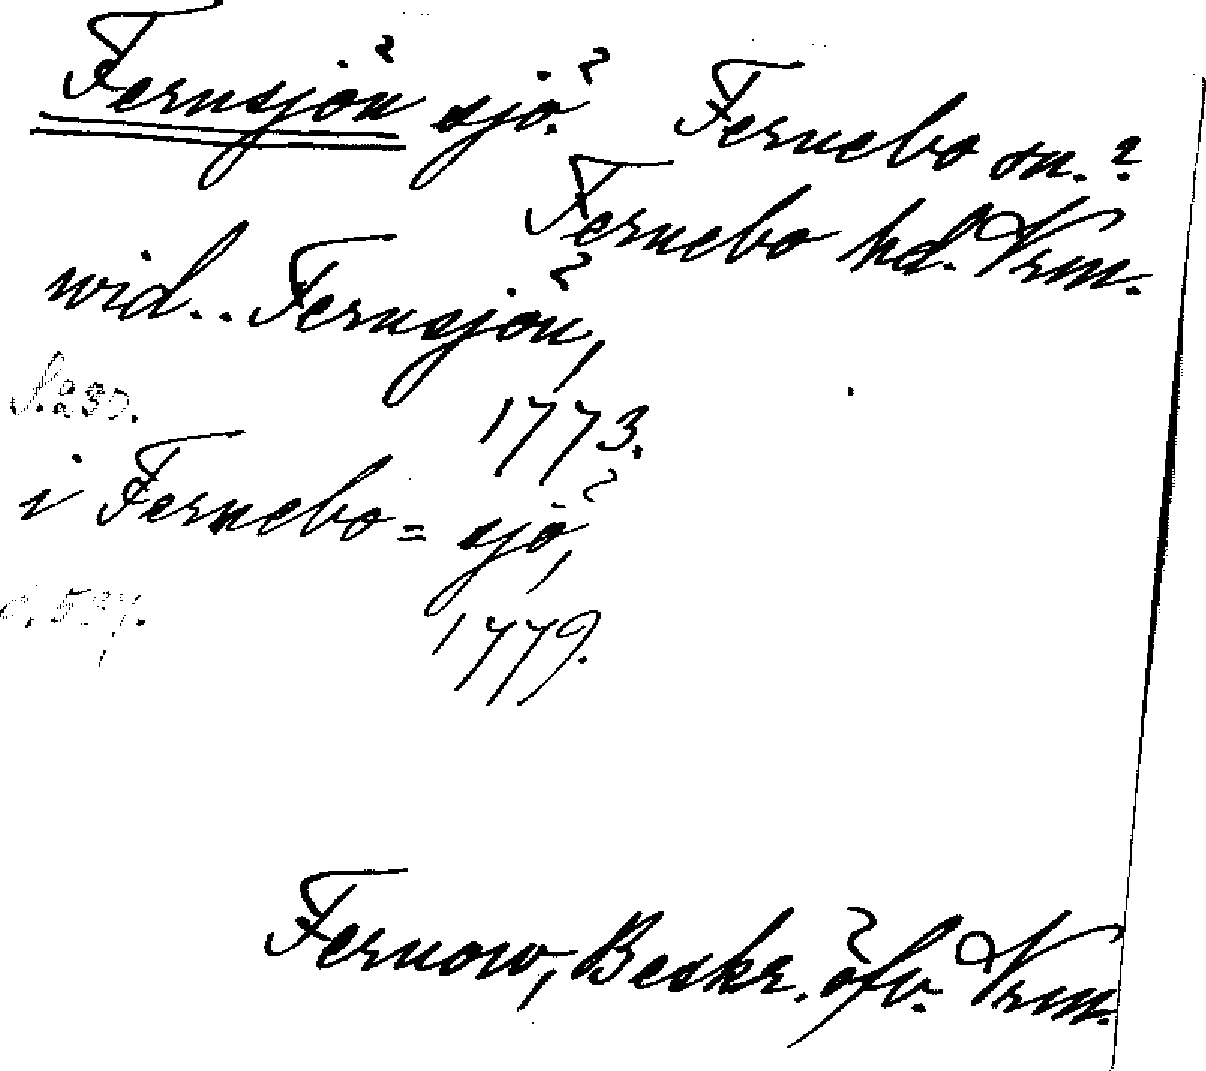 Fernsjön sjö. Fernebo sn.?
Fernebo hd. Vrm.
wid.. Fernsjön,
S. 233.
1773.
i Fernebo=sjö,
1779.
Fernow, Beskr. öfv. Vrm.